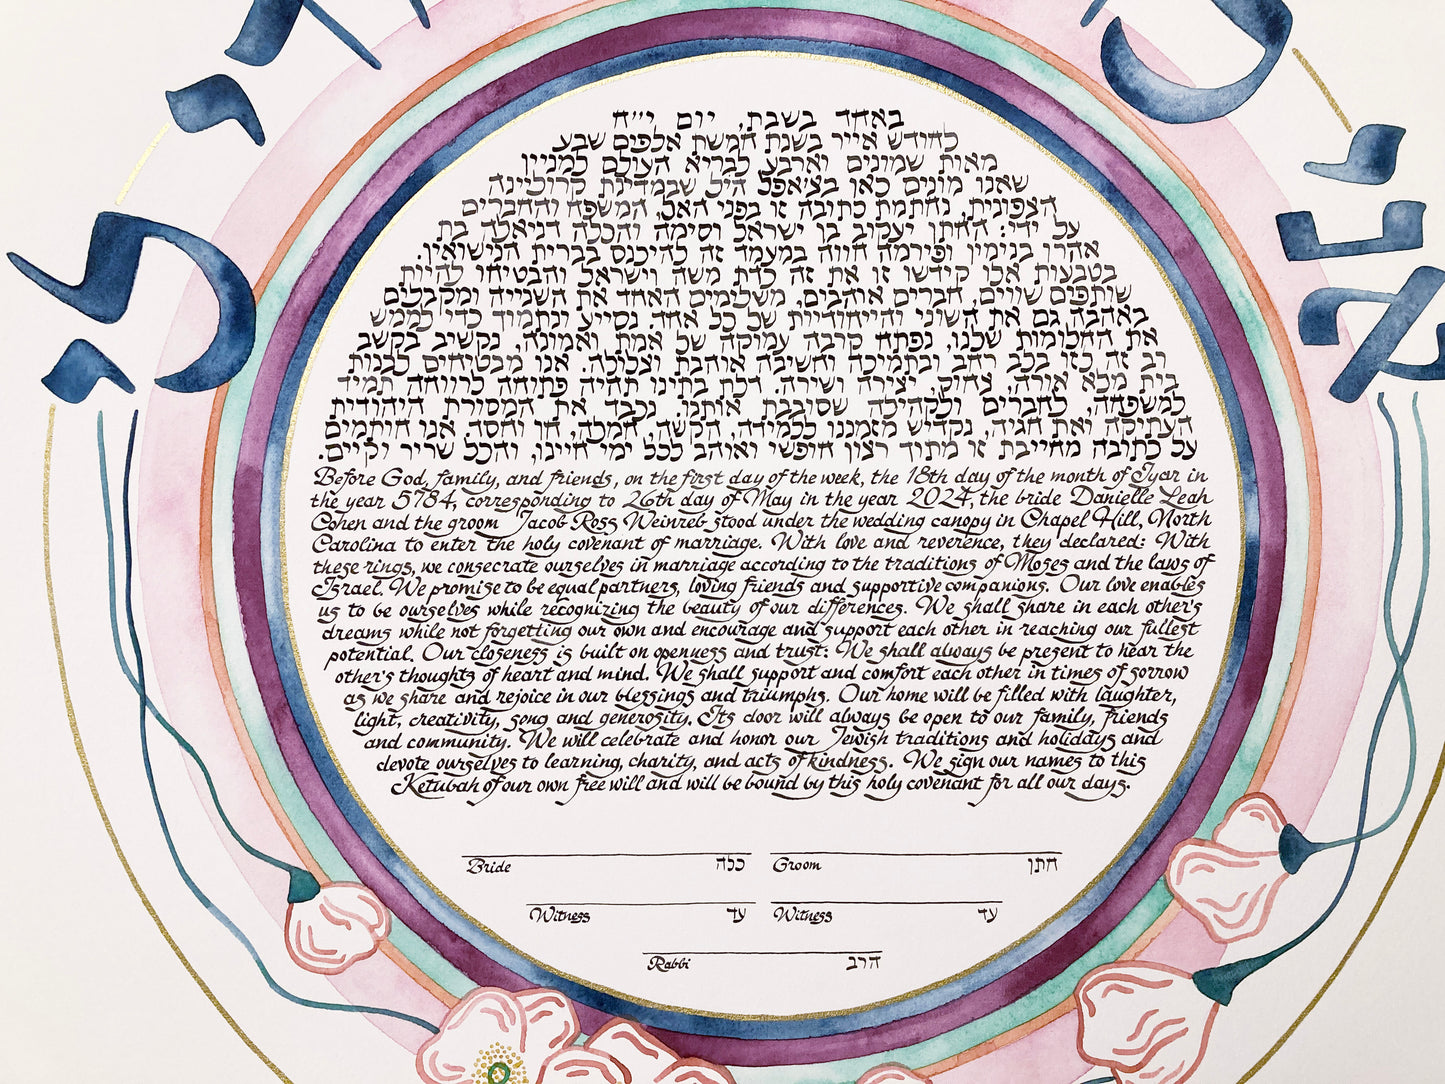 אני
לי
באחד בשבת, יום י״ח
לחודש אייר בשנת חמשת אלפים שבע
מאות שמונים וארבע לבריא העולם למניין
שאנו מונים כאן בצ׳אפל היל שבמדינת קרולינה
הצפונית, נחתמת כתובה זו בפני האל, המשפח והחברים
על ידי: החתן יעקוב בן ישראל וסימה והכלה דניאלה בת
אהרון בנימין ופירמה חווה במעמד זה להיכנס בברית הנישואין.
בטבעות אלו קידשו זו את זה כדת משה וישראל והבטיחו להיות
שותפים שווים, חברים אוהבים, משלימים האחד את השנייה ומקבלים
באהבה גם את השוני והייחודיות של כל אחד. נסייע ונתמוך כדי לממש
את החלומות שלנו, נפתח קרבה עמוקה של אמת ואמונה, נקשיב בקשב
רב זה לזו בלב רחב ובתמיכה וחשיבה אוהבת וצלולה. אנו מבטיחים לבנות
בית מלא אורה, צחוק, יצירה ושירה. דלת בתינו תהיה פתיחה לרווחה תמיד
למשפחה, לחברים ולקהילה שסובבת אותנו. נכבד את המסורת היהודית
העתיקה ואת חגיה, נקדיש מזמננו ללמידה, הקשה, חמלה, חן וחסה אנו חיתמים
על כתובה מחייבת זו מתוך רצון חופשי ואוהב לכל ימי חיינו, והכל שריר וקיים.
Before God, family, and friends, on the first day of the week, the 18th day of the month of Iyar in
the year 5784, corresponding to 26th day of May in the year 2024, the bride Danielle Leah
Cohen and the groom Jacob Ross Weinreb stood under the wedding canopy in Chapel Hill, North
Carolina to enter the holy covenant of marriage. With love and reverence, they declared: With
these rings, we consecrate ourselves in marriage according to the traditions of Moses and the laws of
Israel. We promise to be equal partners, loving friends and supportive companions. Our love enables
us to be ourselves while recognizing the beauty of our differences. We shall share in each other's
dreams while not forgetting our own and encourage and support each other in reaching our fullest
potential. Our closeness is built on openness and trust: We shall always be present to hear the
other's thoughts of heart and mind. We shall support and comfort each other in times of sorrow
as we share and rejoice in our blessings and triumphs. Our home will be filled with laughter,
light, creativity, song and generosity. Its door will always be open to our family, friends
and community. We will celebrate and honor our Jewish traditions and holidays and
devote ourselves to learning, charity, and acts of kindness. We sign our names to this
Ketubah of our own free will and will be bound by this holy covenant for all our days.
Bride כלה Groom חתן
Witness עד Witness עד
Rabbi הרב